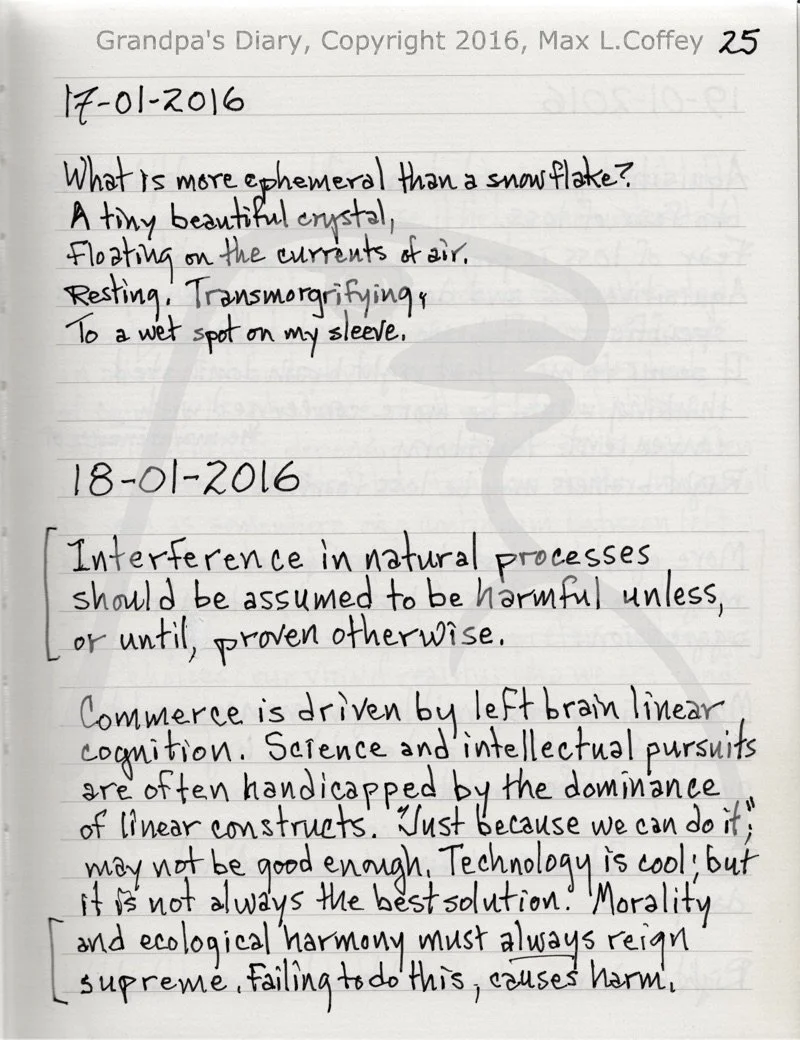 Grandpa's Diary, Copyright 2016, Max L.Coffey 25
17-01-2016
What is more ephemeral than a snowflake?
A tiny beautiful crystal,
Floating on the currents of air.
Resting. Transmorgrifying,
To a wet spot on my sleeve.
18-01-2016
Interference in natural processes
should be assumed to be harmful unless,
or until, proven otherwise.
Commerce is driven by left brain linear
cognition. Science and intellectual pursuits
are often handicapped by the dominance
of linear constructs. "Just because we can do it,"
may not be good enough. Technology is cool; but
it is not always the best solution. Morality
and ecological harmony must always reign
supreme. Failing to do this, causes harm.